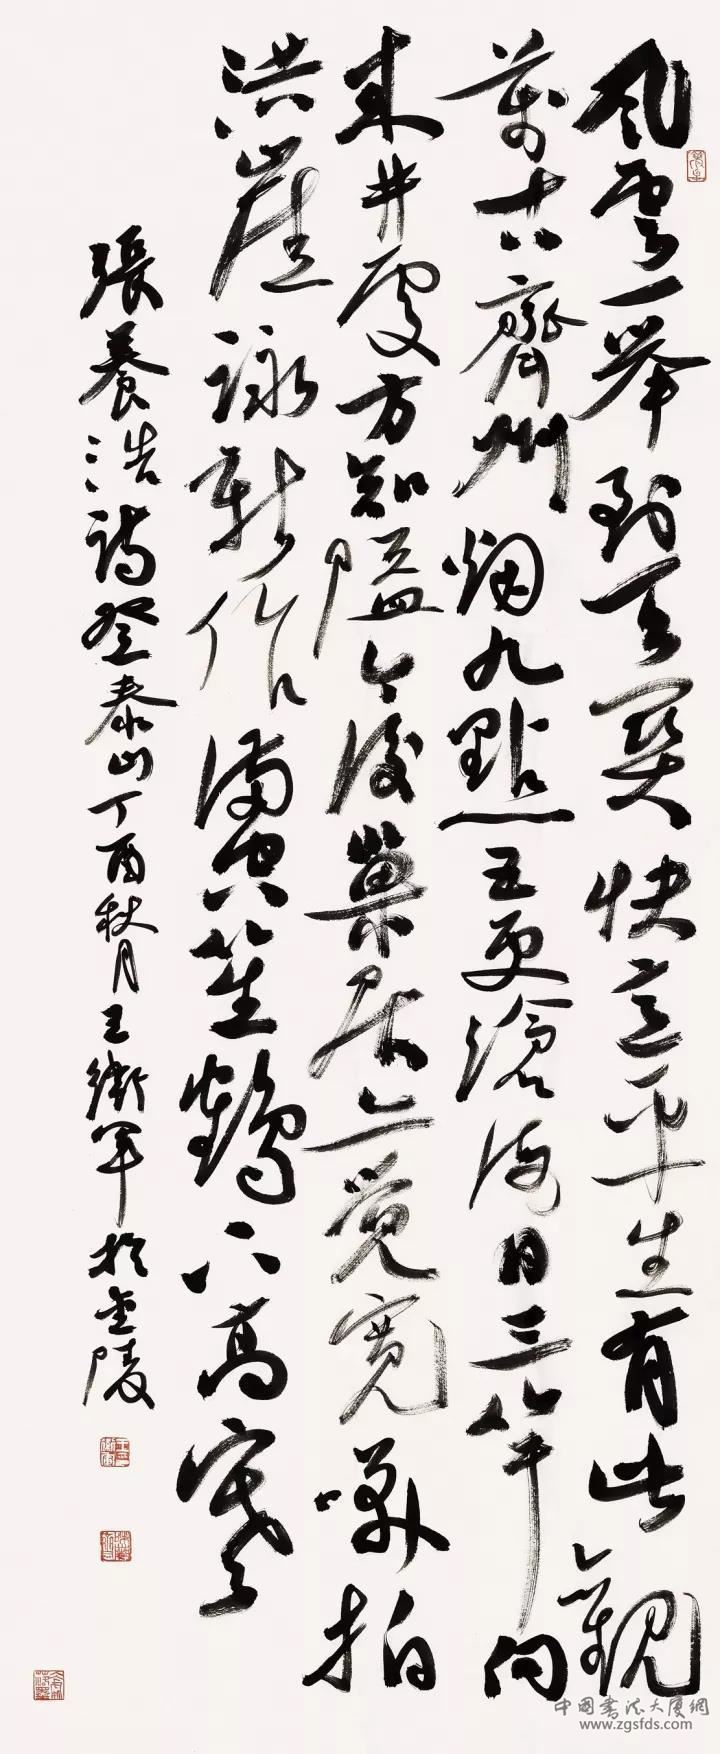 風雲一舉到天關快意平生有此觀
萬古齊州烟九點五更滄海日三竿向
来井處方知隘今後巢居亦覺寬咲拍
洪崖詠新作滿空笙鶴下高寒
張養浩詩登泰山丁酉秋月王衛軍於金陵
中國書法大厦網
www.zgsfds.com